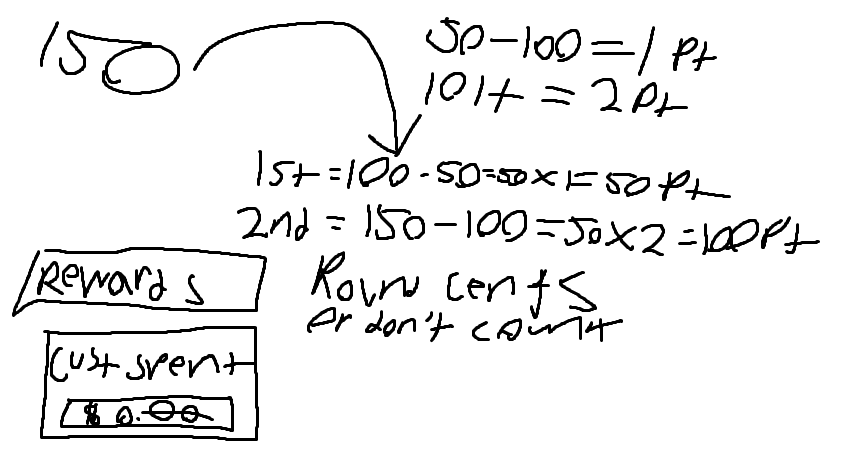 150
50-100=1 Pt
101+ = 2 Pt
1st=100-50=50x1=50 Pt
2nd = 150-100=50x2=100Pt
Rewards
Round cents
or don't count
Cust spent
$0.00